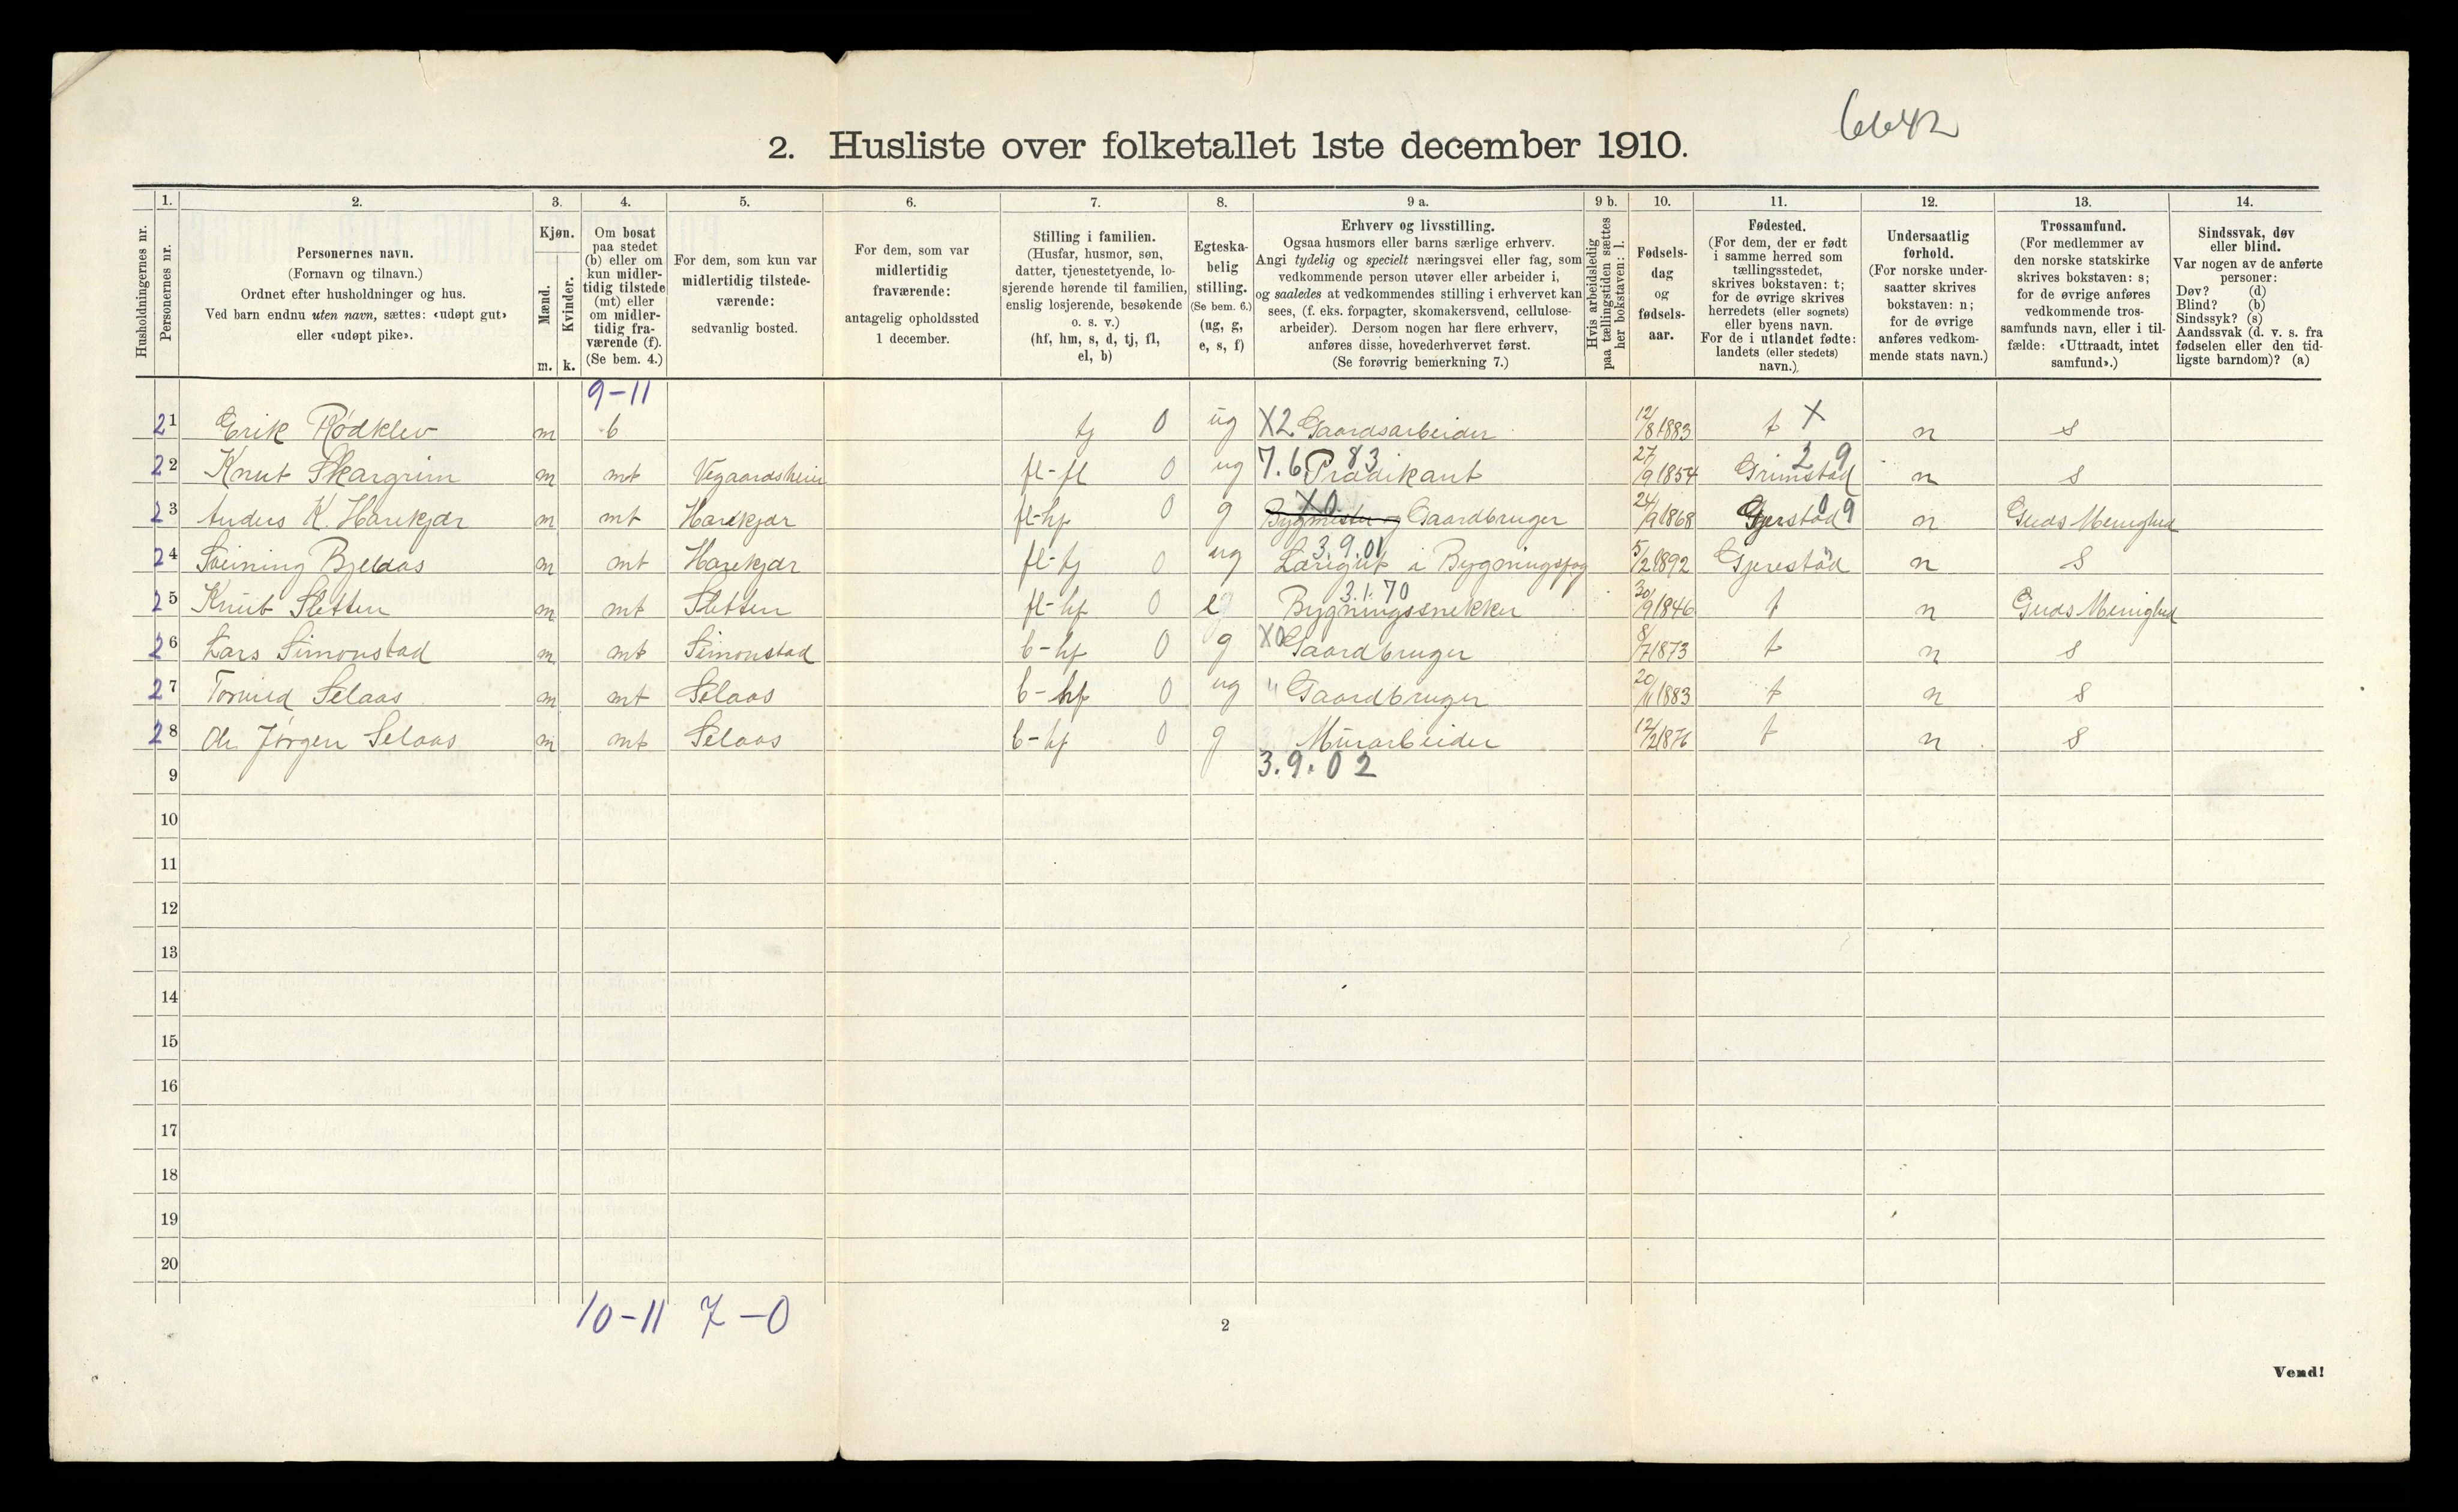 6642
2. Husliste over folketallet 1ste december 1910.
Husholdningernes nr.
1. Personernes nr.
2. Personernes navn. (Fornavn og tilnavn.) Ordnet efter husholdninger og hus. Ved barn endnu uten navn, sættes: «udøpt gut» eller «udøpt pike».
3. Kjøn. Mænd. m. Kvinder. k.
4. Om bosat paa stedet (b) eller om kun midlertidig tilstede (mt) eller om midlertidig fraværende (f). (Se bem. 4.)
5. For dem, som kun var midlertidig tilstedeværende: sedvanlig bosted.
6. For dem, som var midlertidig fraværende: antagelig opholdssted 1 december.
7. Stilling i familien. (Husfar, husmor, søn, datter, tjenestetyende, losjerende hørende til familien, enslig losjerende, besøkende o. s. v.) (hf, hm, s, d, tj, fl, el, b)
8. Egteskabelig stilling. (Se bem. 6.) (ug, g, e, s, f)
9 a. Erhverv og livsstilling. Ogsaa husmors eller barns særlige erhverv. Angi tydelig og specielt næringsvei eller fag, som vedkommende person utøver eller arbeider i, og saaledes at vedkommendes stilling i erhvervet kan sees, (f. eks. forpagter, skomakersvend, cellulosearbeider). Dersom nogen har flere erhverv, anføres disse, hovederhvervet først. (Se forøvrig bemerkning 7.)
9 b. Hvis arbeidsledig paa tællingstiden sættes her bokstaven: l.
10. Fødselsdag og fødselsaar.
11. Fødested. (For dem, der er født i samme herred som tællingsstedet, skrives bokstaven: t; for de øvrige skrives herredets (eller sognets) eller byens navn. For de i utlandet fødte: landets (eller stedets) navn.)
12. Undersaatlig forhold. (For norske undersaatter skrives bokstaven: n; for de øvrige anføres vedkommende stats navn.)
13. Trossamfund. (For medlemmer av den norske statskirke skrives bokstaven: s; for de øvrige anføres vedkommende trossamfunds navn, eller i tilfælde: «Uttraadt, intet samfund».)
14. Sindssvak, døv eller blind. Var nogen av de anførte personer: Døv? (d) Blind? (b) Sindssyk? (s) Aandssvak (d. v. s. fra fødselen eller den tidligste barndom)? (a)
9-11
21 Erik Rødklev m b tj 0 ug X2 Gaardsarbeider 12/8 1883 t X n s
22 Knut Skargrim m mt Vegaardsheien fl-fl 0 ug 7.6.83 Prædikant 27/9 1854 Grimstad 29 n s
23 Anders K. Harekjær m mt Harekjær fl-hf 0 g X0 Bygmester og Gaardbruger 24/9 1868 Gjerstad 09 n Guds Menighed
24 Sveining Bjelaas m mt Harekjær fl-tj 0 ug 3.9.01 Læregut i Bygningsfag 5/2 1892 Gjerestad n s
25 Knut Sletten m mt Sletten fl-hf 0 e 3.1.70 Bygningssnekker 30/9 1846 t n Guds Menighed
26 Lars Simonstad m mt Simonstad b-hf 0 g X0 Gaardbruger 8/7 1873 t n s
27 Torvild Selaas m mt Selaas b-hf 0 ug " Gaardbruger 20/11 1883 t n s
28 Ole Jørgen Selaas m mt Selaas b-hf 0 g Murarbeider 12/2 1876 t n s
9 3.9.02
10
11
12
13
14
15
16
17
18
19
20
10-11 7-0
2
Vend!